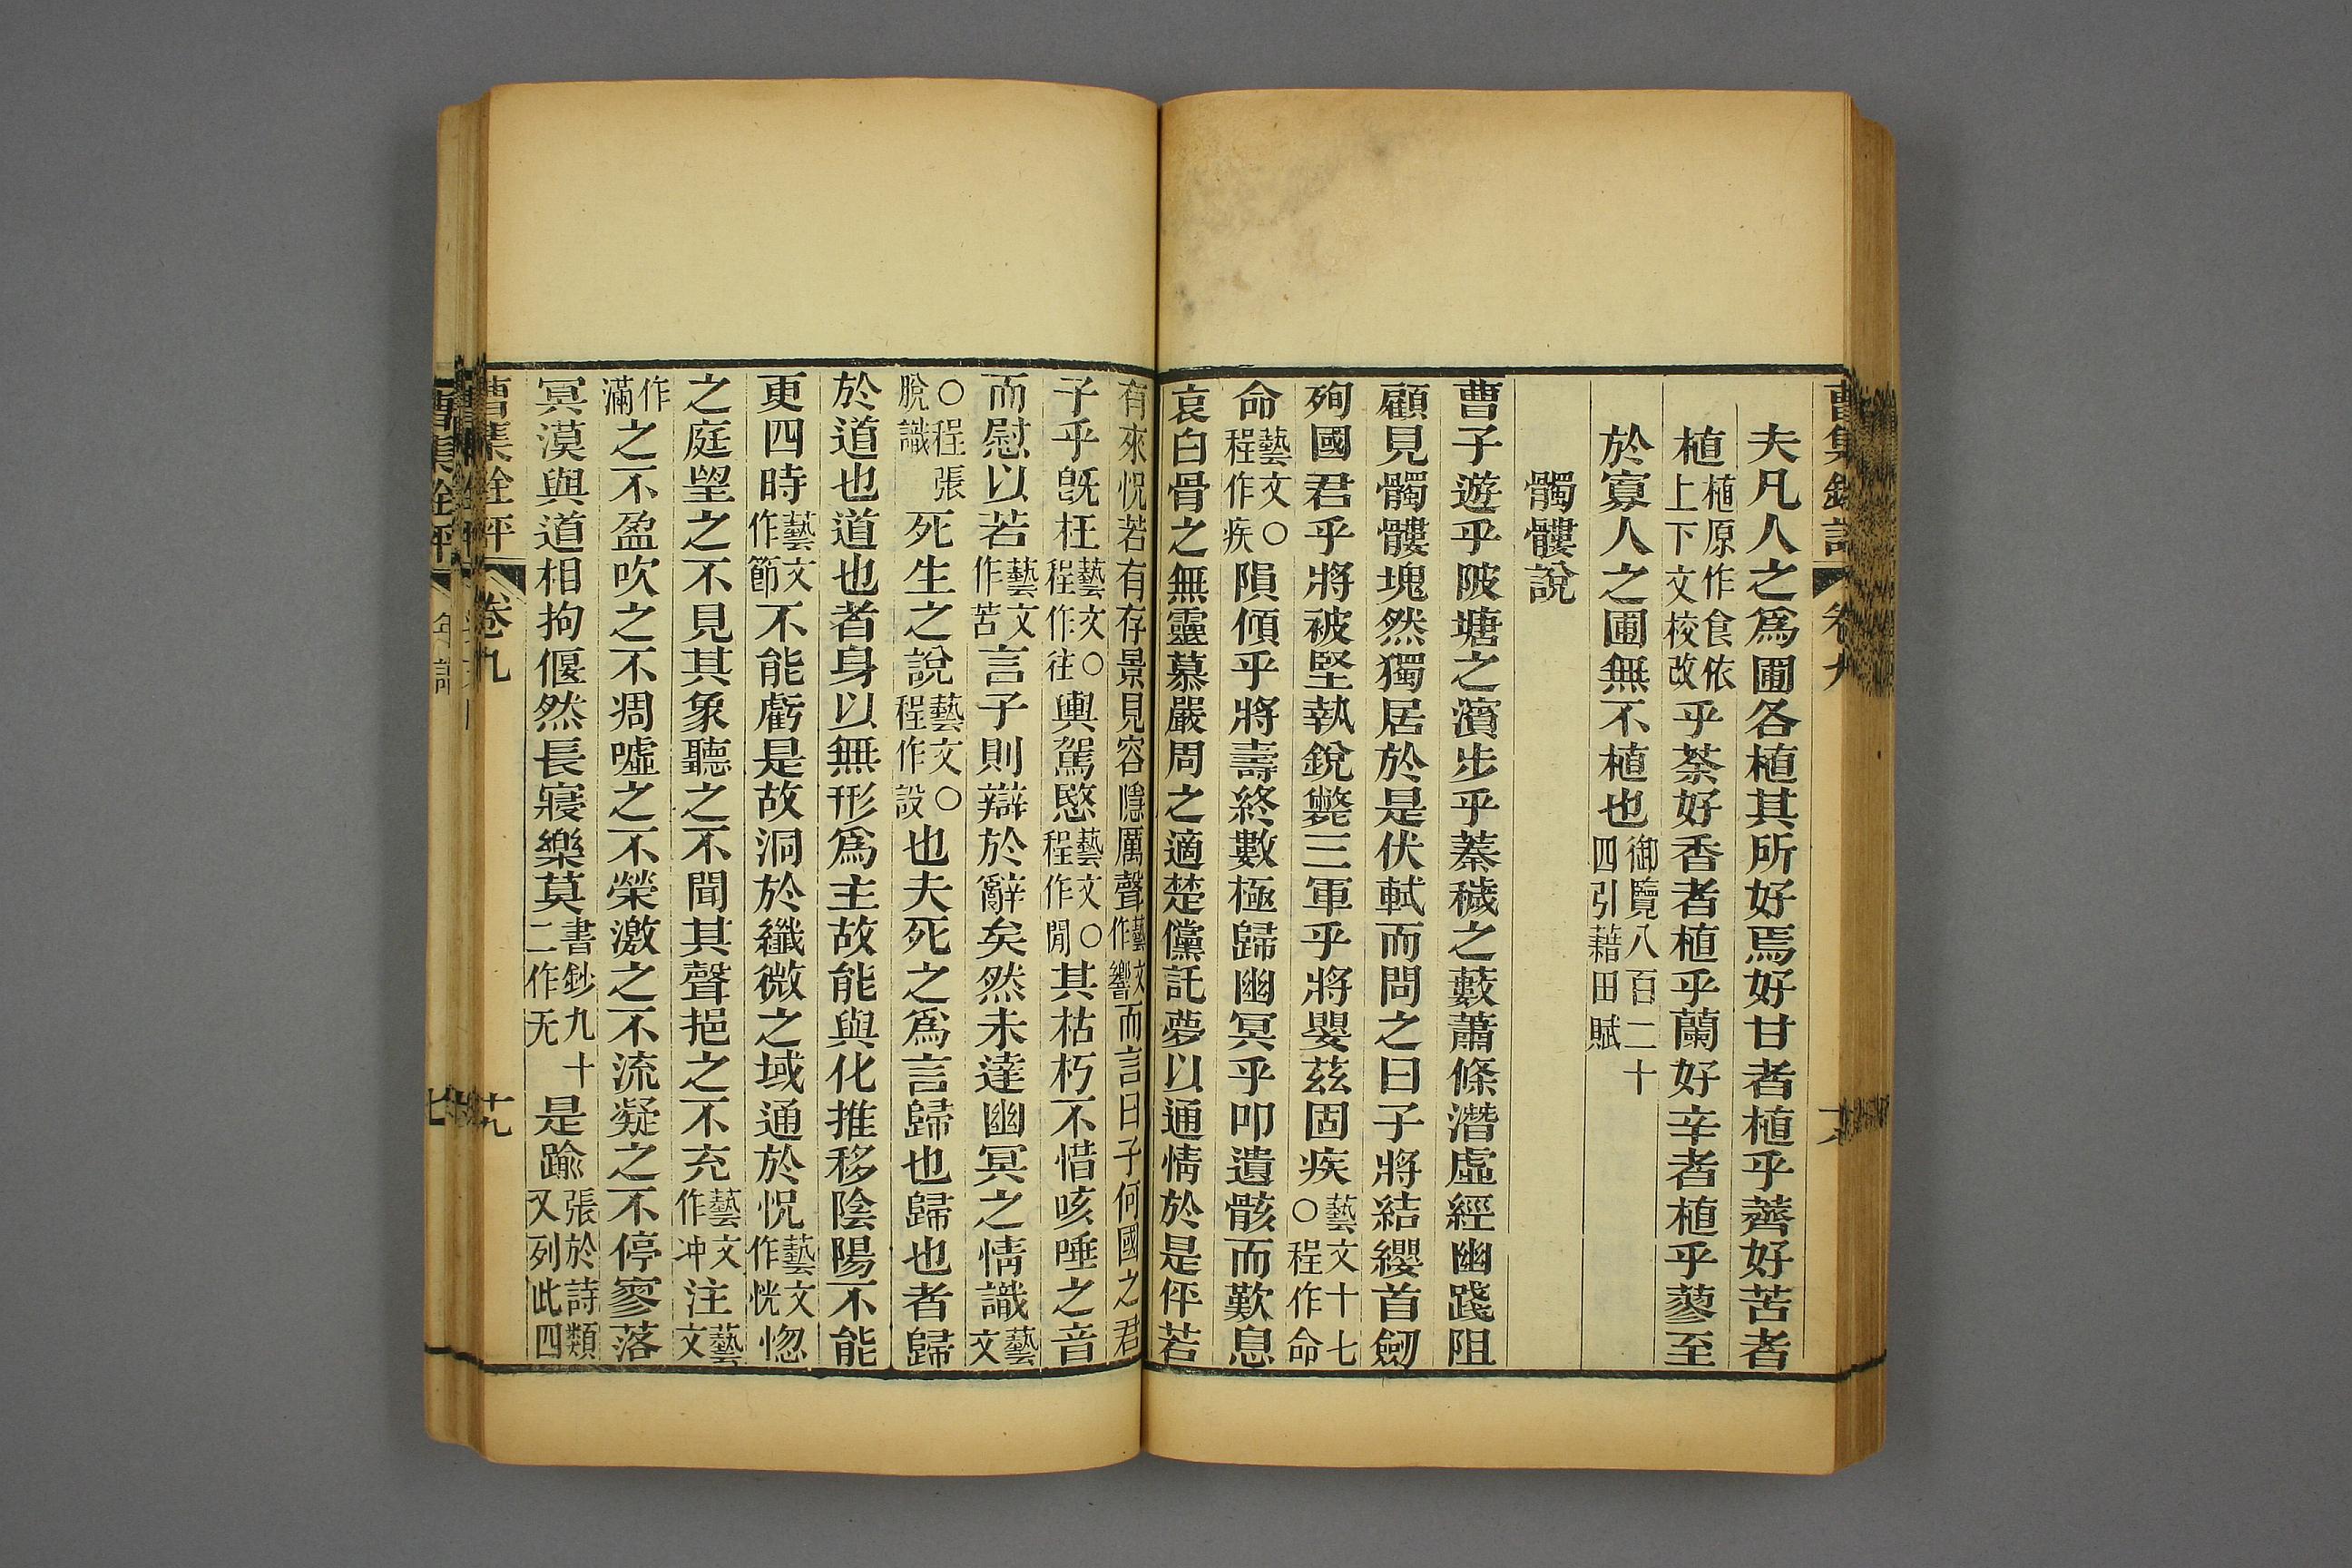 夫凡人之爲圃各植其所好焉好甘者植乎薺好苦者
植植原作食依上下文校改乎荼好香者植乎蘭好辛者植乎蓼至
於寡人之圃無不植也御覽八百二十四引藉田賦
髑髏說
曹子遊乎陂塘之濱步乎蓁穢之藪蕭條潛虛經幽踐阻
顧見髑髏塊然獨居於是伏軾而問之曰子將結纓首劒
殉國君乎將被堅執銳斃三軍乎將嬰茲固疾藝文十七○程作命
命藝文○程作疾隕傾乎將壽終數極歸幽冥乎叩遺骸而歎息
哀白骨之無靈慕嚴周之適楚儻託夢以通情於是伻若
有來怳若有存景見容隱厲聲藝文作響而言曰子何國之君
子乎旣枉藝文○程作往輿駕愍藝文○程作閒其枯朽不惜咳唾之音
而慰以若藝文作苦言子則辯於辭矣然未達幽冥之情識藝文
○程張脫識死生之說藝文○程作設也夫死之爲言歸也歸也者歸
於道也道也者身以無形爲主故能與化推移陰陽不能
更四時藝文作節不能虧是故洞於纖微之域通於怳藝文作恍惚
之庭望之不見其象聽之不聞其聲挹之不充藝文作冲注藝文
作滿之不盈吹之不凋噓之不榮激之不流凝之不停寥落
冥漠與道相拘偃然長寢樂莫書鈔九十二作无是踰張於詩類又列此四
曹集銓評 卷九 十九